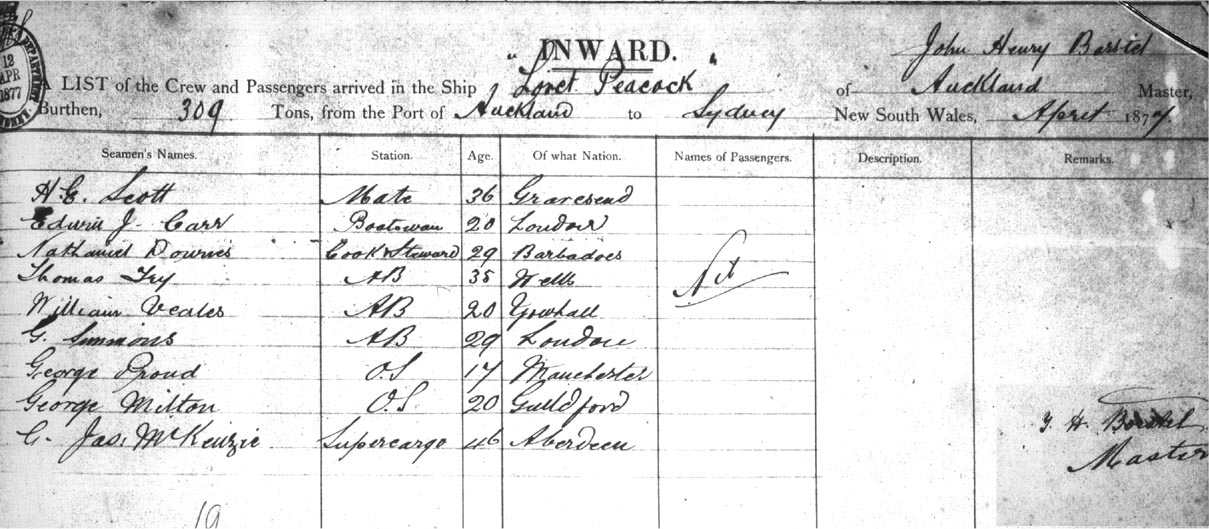 12 APR 1877
" INWARD. "
John Henry
A LIST of the Crew and Passengers arrived in the Ship Peacock of Auckland Master,
Burthen, 309 Tons, from the Port of Auckland to Sydney New South Wales, April 1877
Seamen's Names. Station. Age. Of what Nation. Names of Passengers. Description. Remarks.
H.E. Scott Mate 36 Gravesend
Edwin J. Carr Boatswan 20 London
Nathaniel Downes Cook & Steward 29 Barbadoes
Thomas AB 35
William Veales AB 20
G. Simmons AB 29 London
George Proud O.S 17 Manchester
George Milton O.S 20 Guildford
G. Jas. McKenzie Supercargo 46 Aberdeen
Master
19